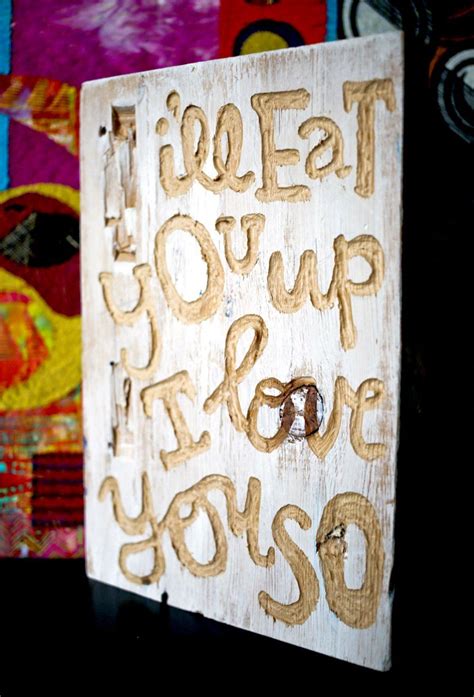 i'll EaT
yOu up
I love
yousO